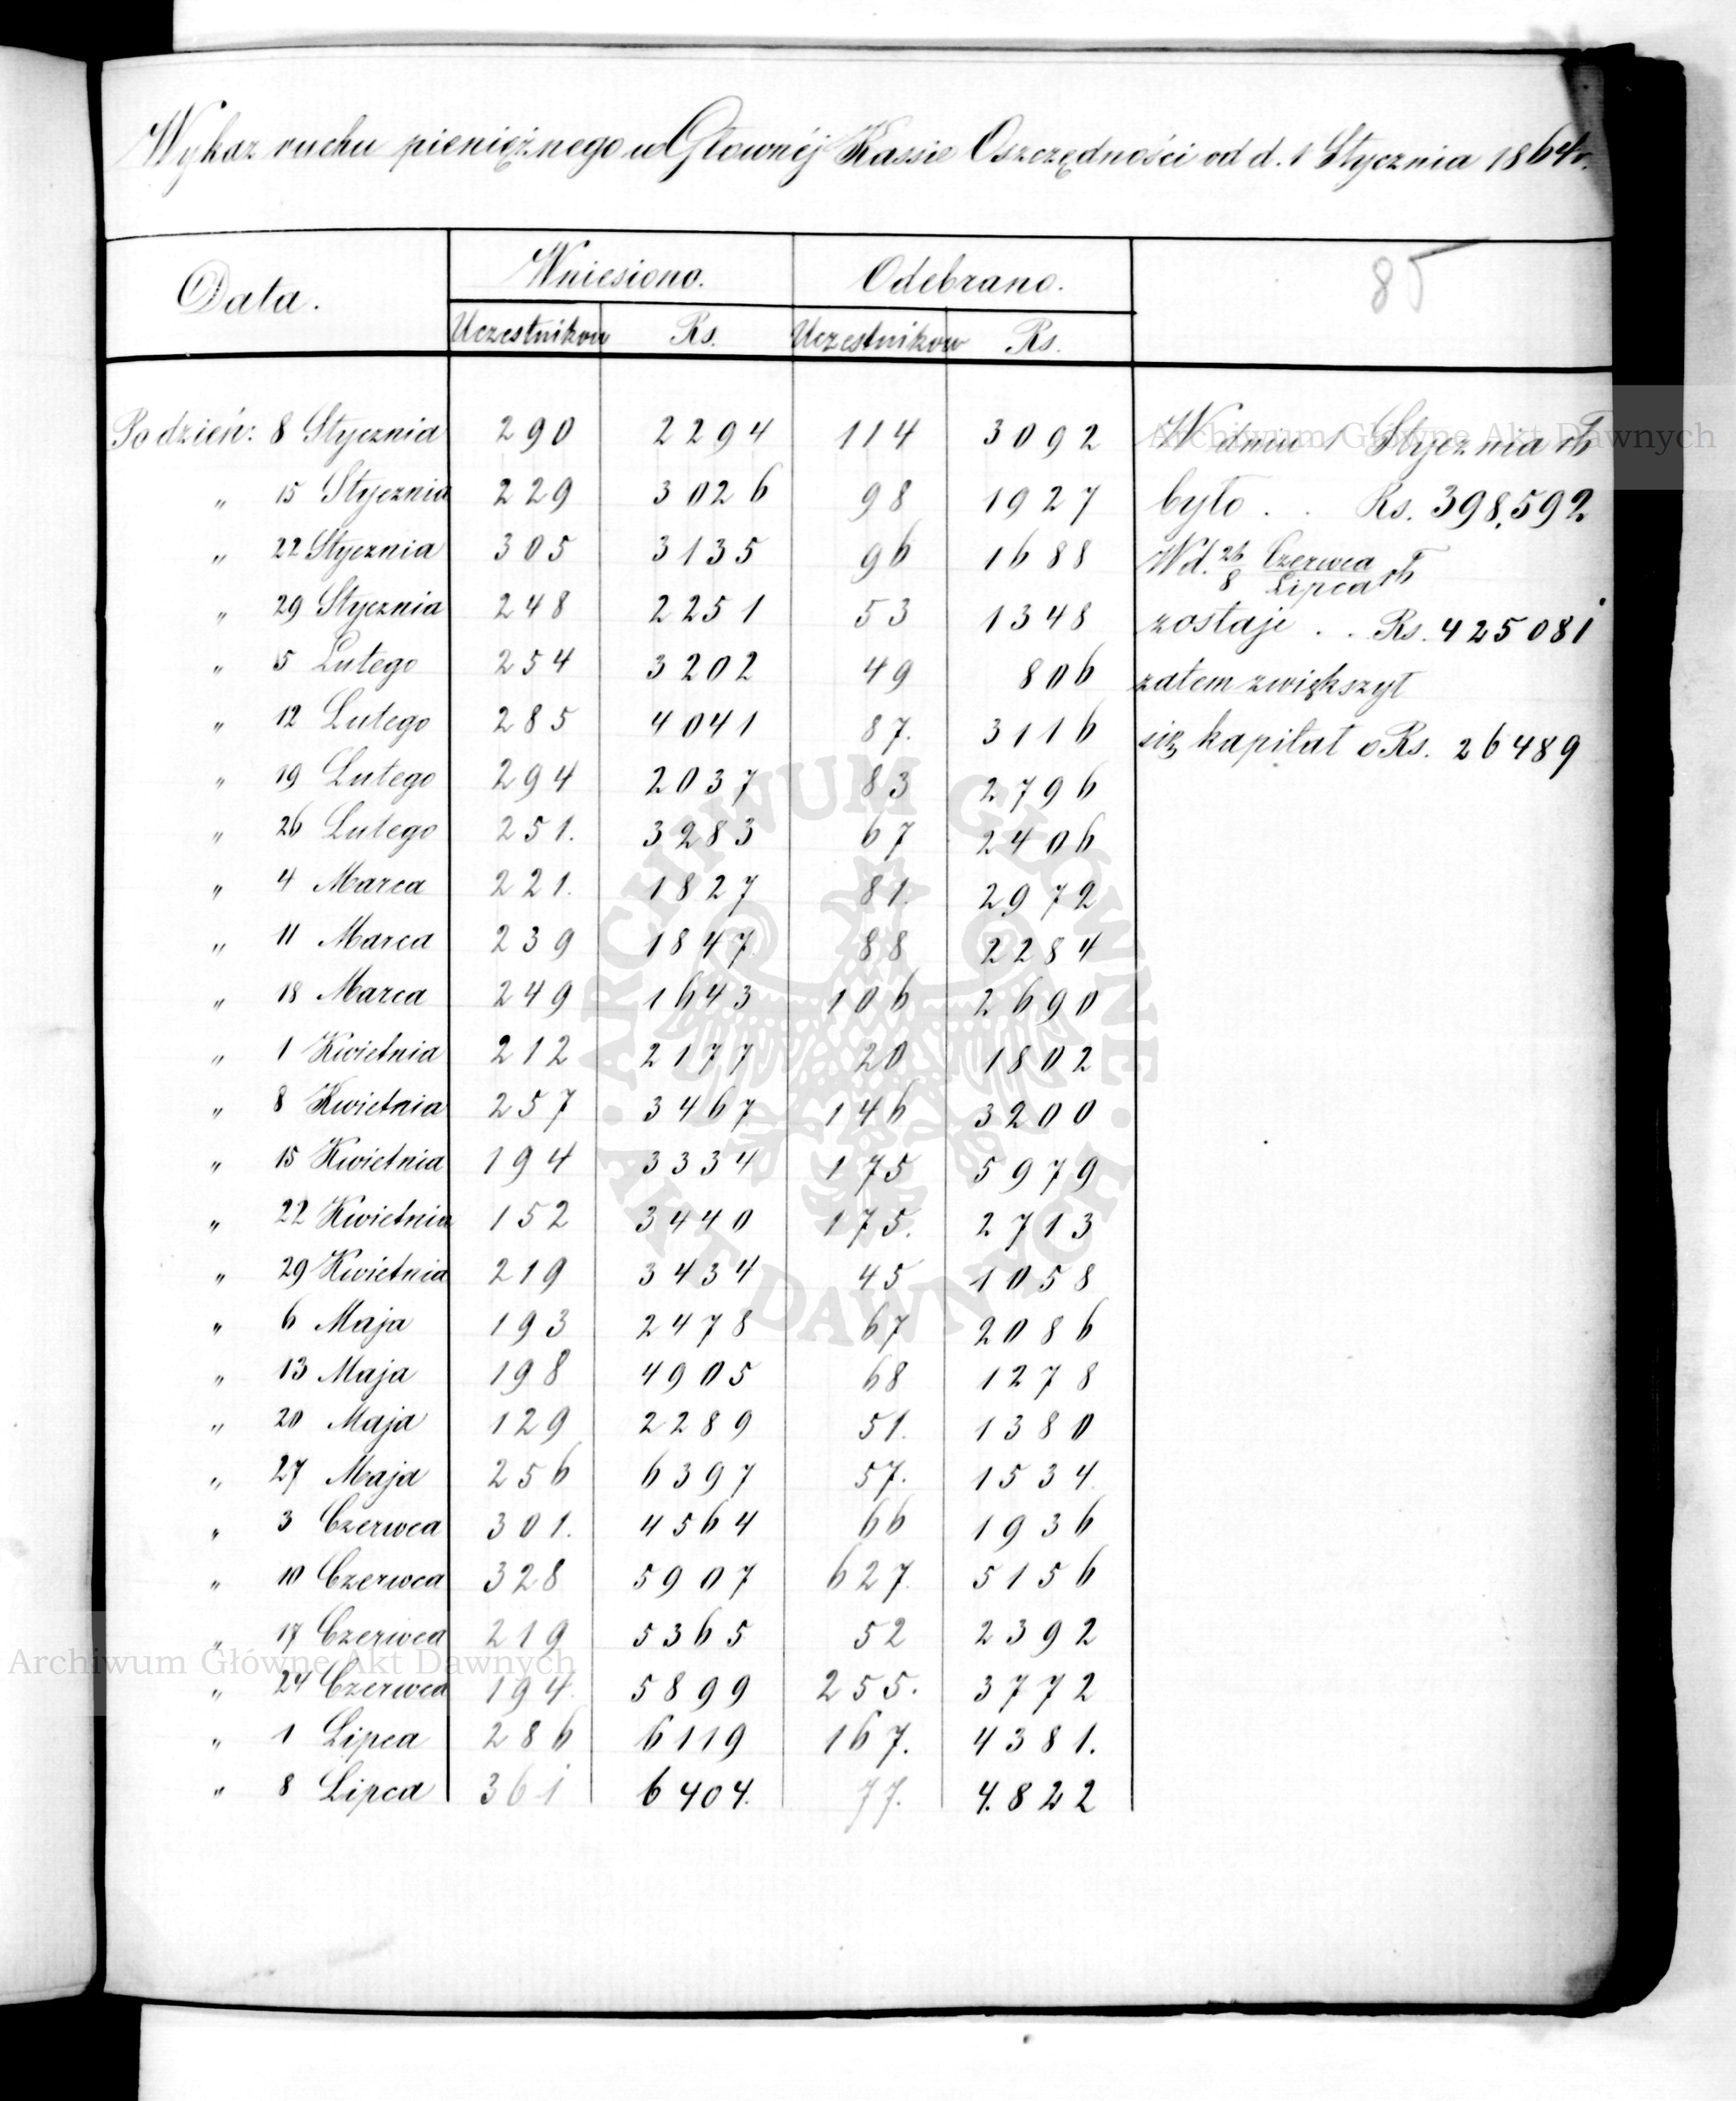 Wykaz ruchu pieniężnego w Głownéj Kassie Oszczędności od d. 1 Stycznia 1864 r.
85
Data. Wniesiono. Odebrano.
Uczestnikow Rs. Uczestnikow Rs.
Po dzień: 8 Stycznia 290 2294 114 3092 W dniu 1 Stycznia rb
" 15 Stycznia 229 3026 98 1927 było . . Rs. 398,592
" 22 Stycznia 305 3135 96 1688 W d. 26/8 Czerwca/Lipca rb
" 29 Stycznia 248 2251 53 1348 zostaje . . Rs. 425081
" 5 Lutego 254 3202 49 806 zatem zwiększył
" 12 Lutego 285 4041 87. 3116 się kapitał o Rs. 26489
" 19 Lutego 294 2037 83 2796
" 26 Lutego 251. 3283 67 2406
" 4 Marca 221. 1827 81. 2972
" 11 Marca 239 1847 88 2284
" 18 Marca 249 1643 106 2690
" 1 Kwietnia 212 2177 20 1802
" 8 Kwietnia 257 3467 146 3200
" 15 Kwietnia 194 3334 175 5979
" 22 Kwietnia 152 3440 175. 2713
" 29 Kwietnia 219 3434 45 1058
" 6 Maja 193 2478 67 2086
" 13 Maja 198 4905 68 1278
" 20 Maja 129 2289 51. 1380
" 27 Maja 256 6397 57. 1534
" 3 Czerwca 301. 4564 66 1936
" 10 Czerwca 328 5907 627. 5156
" 17 Czerwca 219 5365 52 2392
" 24 Czerwca 194. 5899 255. 3772
" 1 Lipca 286 6119 167. 4381.
" 8 Lipca 361 6404. 77. 4.822
Archiwum Główne Akt Dawnych
ARCHIWUM GŁÓWNE · AKT DAWNYCH ·
Archiwum Główne Akt Dawnych